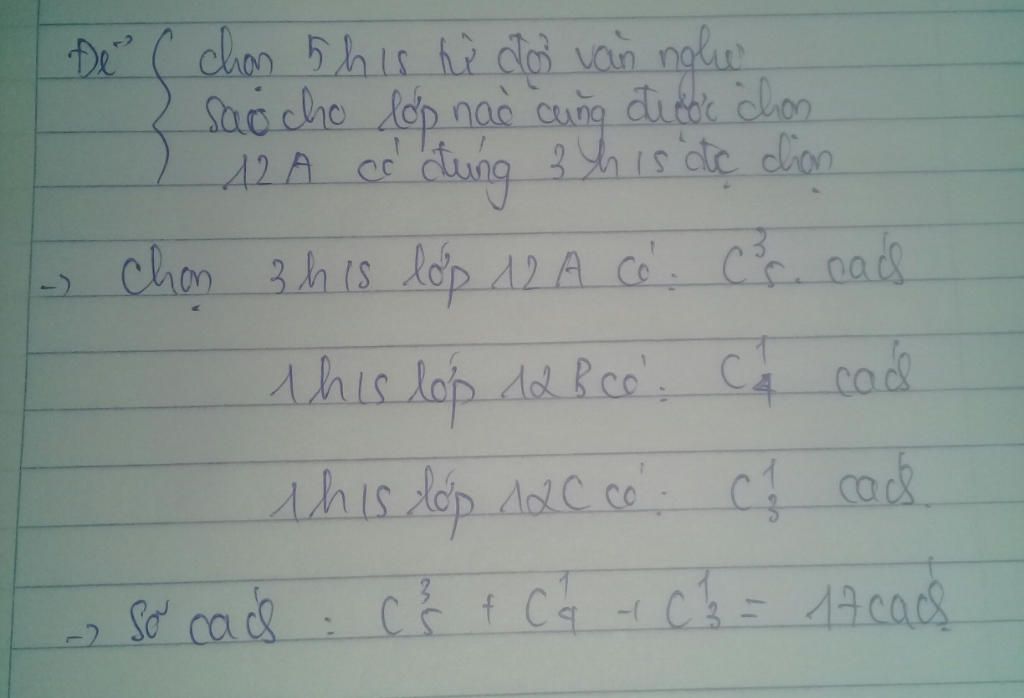 Đề { chọn 5 h/s từ đội văn nghệ
sao cho lớp nào cũng được chọn
12A có đúng 3 h/s đc chọn
→ Chọn 3 h/s lớp 12A có: C³₅. cách
1 h/s lớp 12B có: C¹₄ cách
1 h/s lớp 12C có: C¹₃ cách.
→ Số cách : C³₅ + C¹₄ + C¹₃ = 17 cách